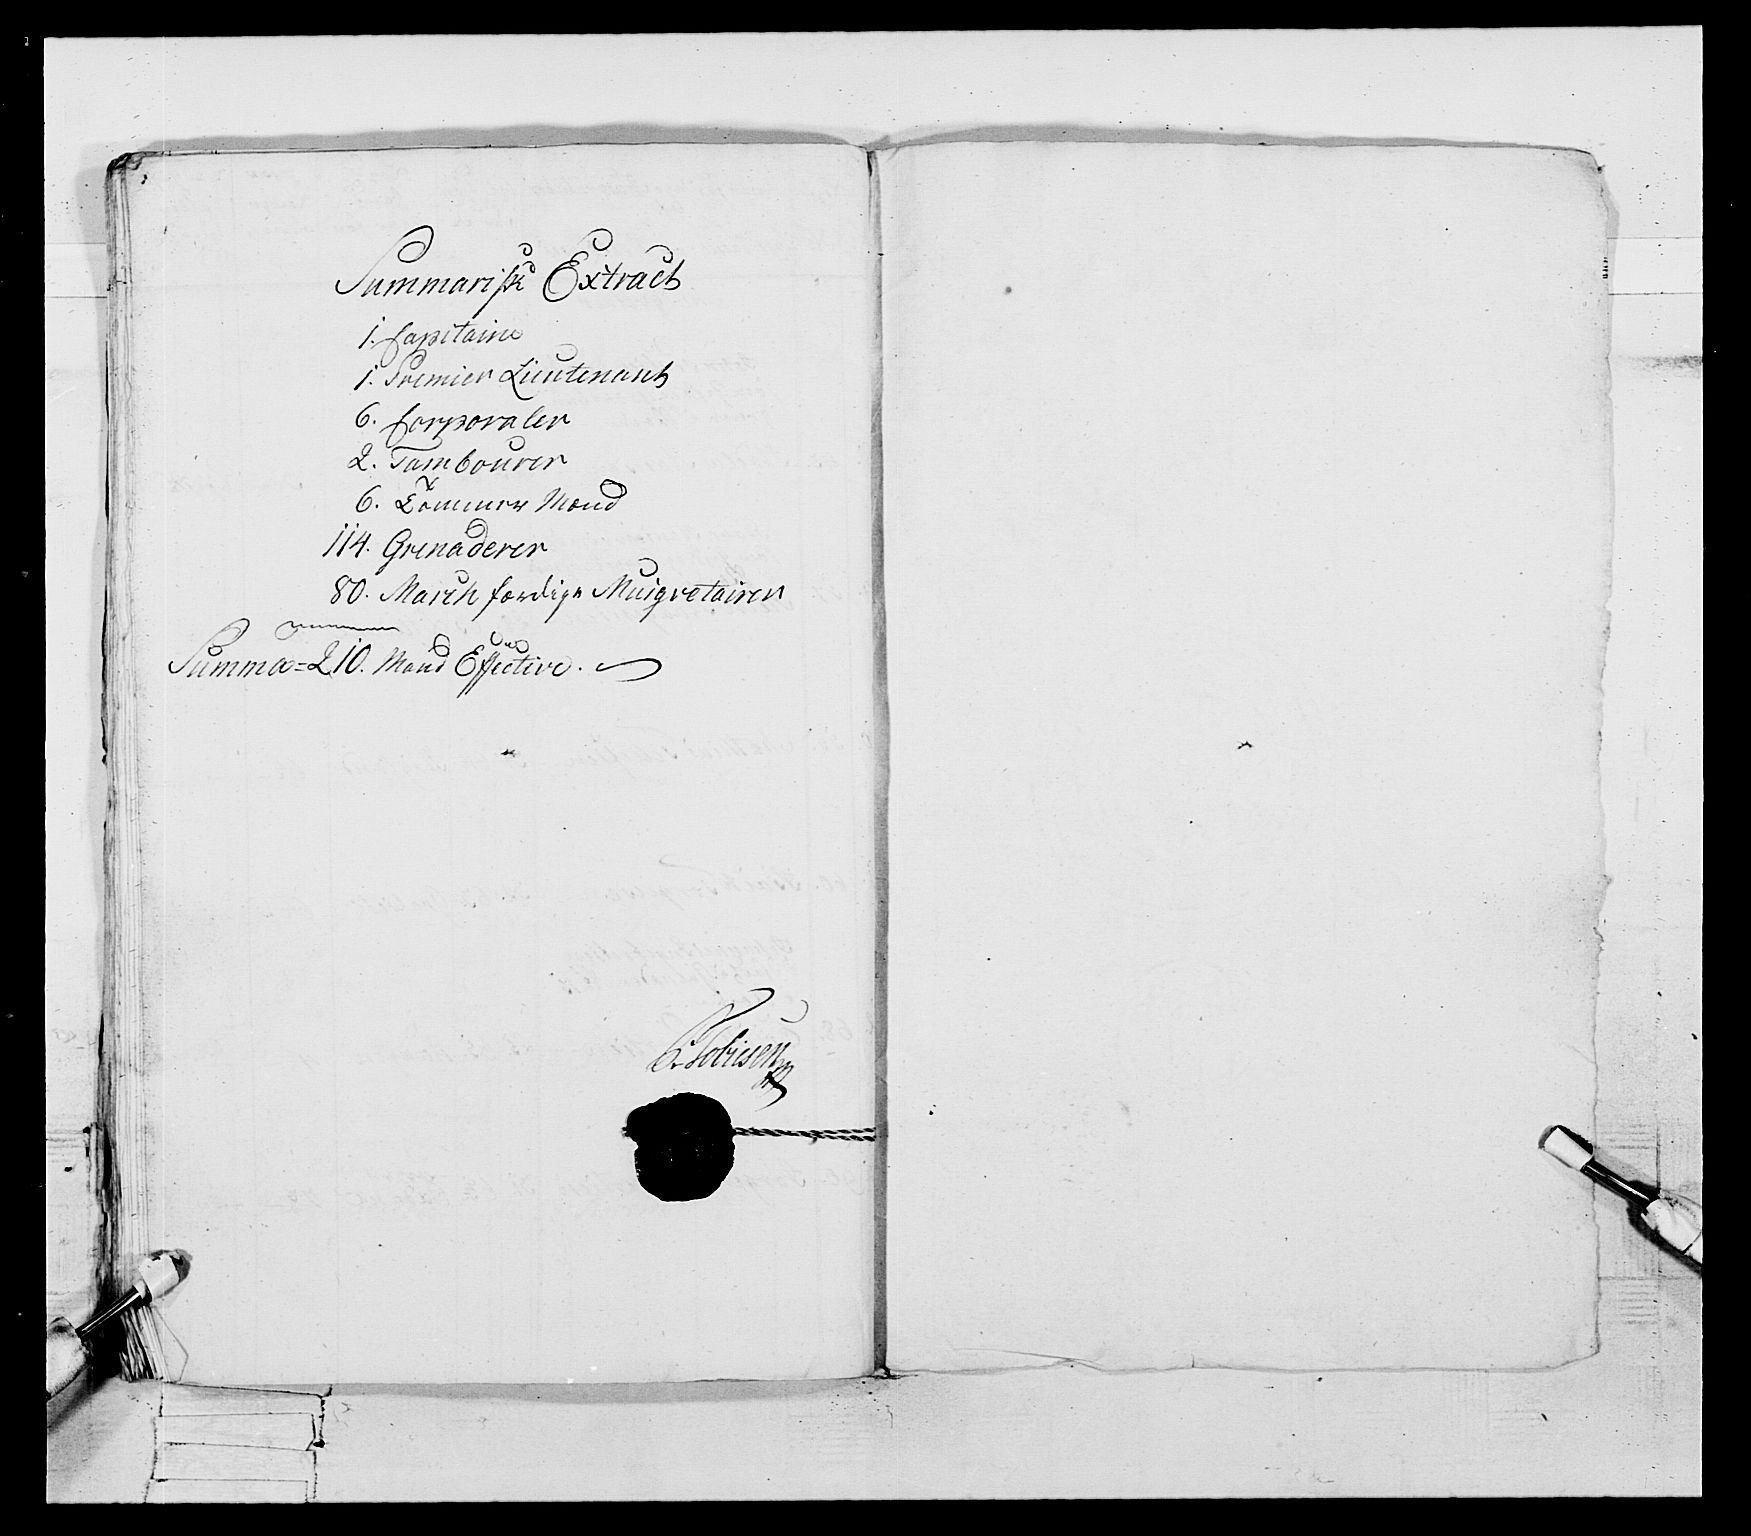 Summarisk Extract
1. Capitaine
1. Premier Lieutenant
6. Corporaler
2. Tambourer
6. Tømmer Mænd
114. Grenaderer
80. March færdige Musqvetairer
Summa = 210. Mand Effective.
Tobiesen